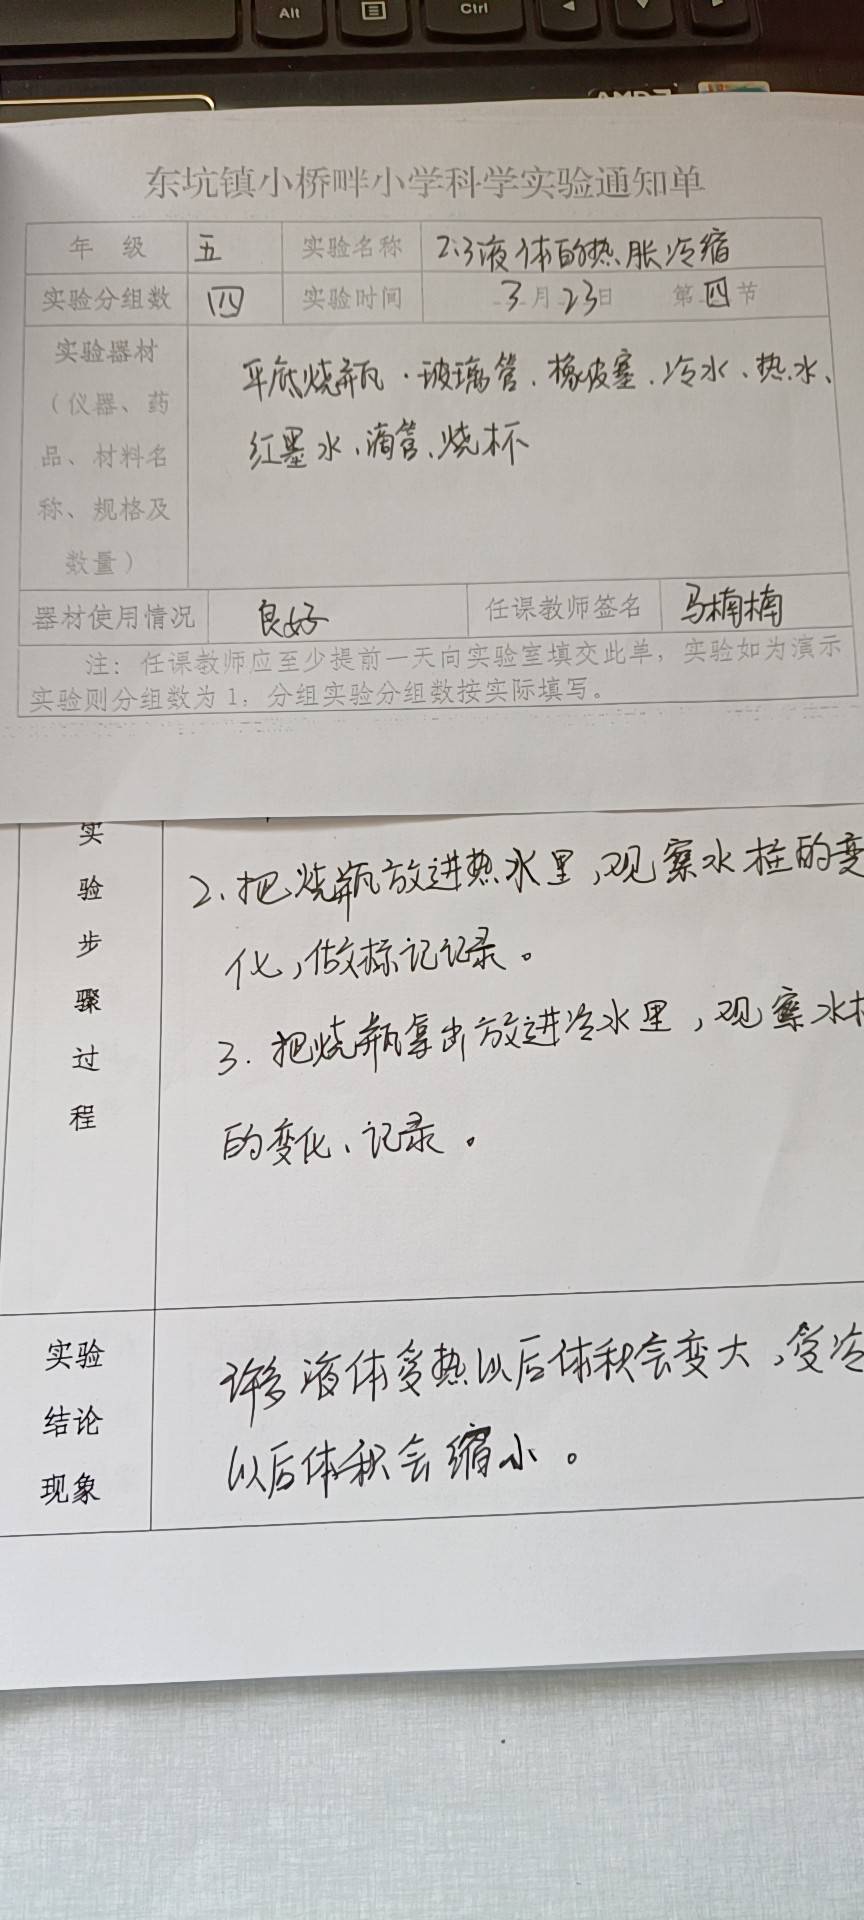 Alt
Ctrl
东坑镇小桥畔小学科学实验通知单
年 级 五 实验名称 2.3液体的热胀冷缩
实验分组数 四 实验时间 3月23日 第四节
实验器材
(仪器、药
品、材料名
称、规格及
数量)
平底烧瓶·玻璃管、橡皮塞、冷水、热水、
红墨水、滴管、烧杯
器材使用情况 良好 任课教师签名 马楠楠
注：任课教师应至少提前一天向实验室填交此单，实验如为演示
实验则分组数为1，分组实验分组数按实际填写。
实
验
步
骤
过
程
2.把烧瓶放进热水里,观察水柱的变
化,做标记记录。
3.把烧瓶拿出放进冷水里,观察水
的变化、记录。
实验
结论
现象
许多液体受热以后体积会变大,受冷
以后体积会缩小。